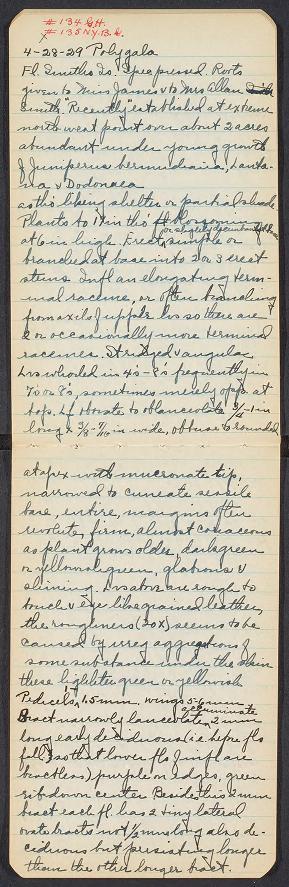 #134 G.H.
#135 N.Y.B.G.
4-28-29 Polygala
Fl. Smiths Is. Spec pressed. Roots
given to Miss James & to Mrs Allan
Smith. "Recently" established at extreme
north west point over about 2 acres
abundant under young growth
of Juniperus bermudiana, Lanta-
na & Dodonaea
as tho' liking shelter or partial shade
Plants to 17 in tho' blossoming
or slightly decumbent at base
at 6 in high. Erect, simple or
branched at base into 2 or 3 erect
stems. Infl an elongating term-
inal raceme, or often branching
from axils of upper lvs so there are
2 or occasionally more terminal
racemes. St ridged & angular.
Lvs whorled in 4s-5s frequently in
7s or 8s, sometimes merely opp. at
top. Lf obovate to oblanceolate 3/4-1 in
long x 3/8-7/16 in wide, obtuse to rounded
at apex with mucronate tip,
narrowed to cuneate sessile
base, entire, margins often
revolute, firm, almost coriaceous
as plant grows older, dark green
or yellowish green, glabrous &
shining. Lvs above are rough to
touch & eye like grained leather,
the roughness (20x) seems to be
caused by irreg aggregations of
some substance under the skin
these lighter green or yellowish
Pedicels 1.5 mm. wings 5-6 mm
acuminate
Bract narrowly lanceolate, 2 mm
long early deciduous (i.e. before fls
fall, so that lower fls of infl are
bractless) purple on edges, green
rib down center. Beside this 2 mm
bract each fl. has 2 tiny lateral
ovate bracts not 1/2 mm long also de-
ciduous but persisting longer
than the other longer bract.